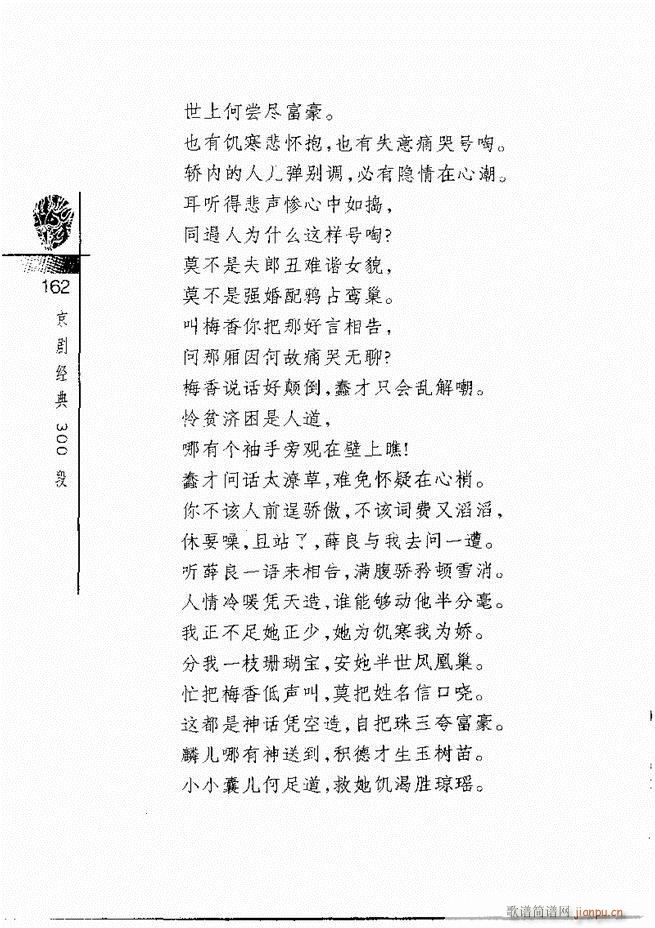 世上何尝尽富豪。
也有饥寒悲怀抱,也有失意痛哭号啕。
轿内的人儿弹别调,必有隐情在心潮。
耳听得悲声惨心中如捣,
同遇人为什么这样号啕?
莫不是夫郎丑难谐女貌,
莫不是强婚配鸦占鸾巢。
叫梅香你把那好言相告,
问那厢因何故痛哭无聊?
梅香说话好颠倒,蠢才只会乱解嘲。
怜贫济困是人道,
哪有个袖手旁观在壁上瞧!
蠢才问话太潦草,难免怀疑在心梢。
你不该人前逞骄傲,不该词费又滔滔,
休要噪,且站了,薛良与我去问一遭。
听薛良一语来相告,满腹骄矜顿雪消。
人情冷暖凭天造,谁能够动他半分毫。
我正不足她正少,她为饥寒我为娇。
分我一枝珊瑚宝,安她半世凤凰巢。
忙把梅香低声叫,莫把姓名信口哓。
这都是神话凭空造,自把珠玉夸富豪。
麟儿哪有神送到,积德才生玉树苗。
小小囊儿何足道,救她饥渴胜琼瑶。
162
京剧经典300段
歌谱简谱网 jianpu.cn